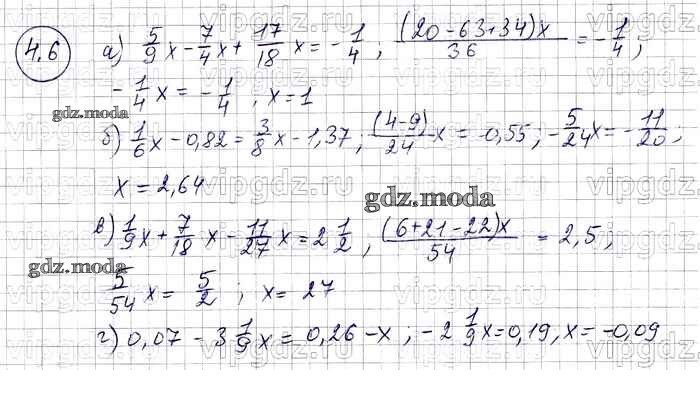 4.6 а) 5/9 x - 7/4 x + 17/18 x = - 1/4 ; (20-63+34)x/36 = - 1/4 ;
- 1/4 x = - 1/4 , x = 1
gdz.moda
б) 1/6 x - 0,82 = 3/8 x - 1,37 ; (4-9)/24 x = -0,55 ; - 5/24 x = - 11/20 ;
x = 2,64
gdz.moda
в) 1/9 x + 7/18 x - 11/27 x = 2 1/2 , (6+21-22)x/54 = 2,5 ;
gdz.moda
5/54 x = 5/2 ; x = 27
г) 0,07 - 3 1/9 x = 0,26 - x ; - 2 1/9 x = 0,19 , x = -0,09
vipgdz.ru